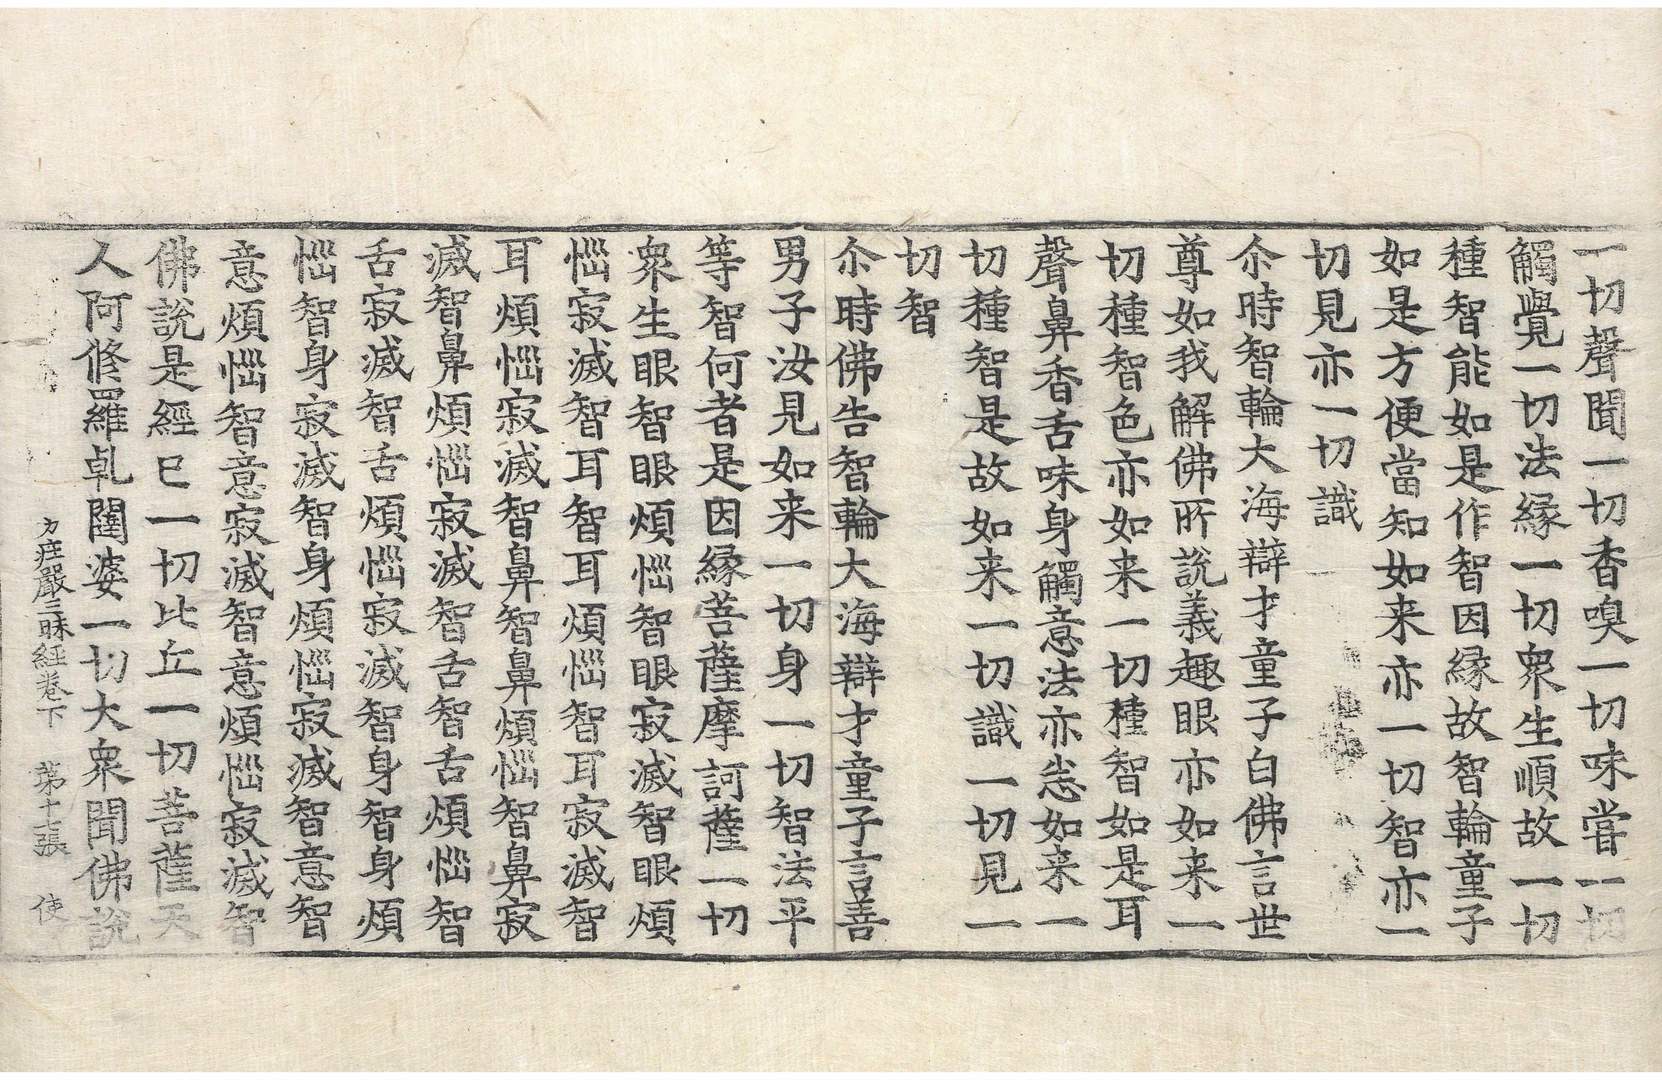 一切聲聞一切香嗅一切味嘗一切
觸覺一切法緣一切衆生順故一切
種智能如是作智因緣故智輪童子
如是方便當知如来亦一切智亦一
切見亦一切識
尒時智輪大海辯才童子白佛言世
尊如我解佛所說義趣眼亦如来一
切種智色亦如来一切種智如是耳
聲鼻香舌味身觸意法亦悉如来一
切種智是故如来一切識一切見一
切智
尒時佛告智輪大海辯才童子言善
男子汝見如来一切身一切智法平
等智何者是因緣菩薩摩訶薩一切
衆生眼智眼煩惱智眼寂滅智眼煩
惱寂滅智耳智耳煩惱智耳寂滅智
耳煩惱寂滅智鼻智鼻煩惱智鼻寂
滅智鼻煩惱寂滅智舌智舌煩惱智
舌寂滅智舌煩惱寂滅智身智身煩
惱智身寂滅智身煩惱寂滅智意智
意煩惱智意寂滅智意煩惱寂滅智
佛說是經已一切比丘一切菩薩天
人阿修羅乹闥婆一切大衆聞佛說
力莊嚴三昧經卷下　第十七張　使